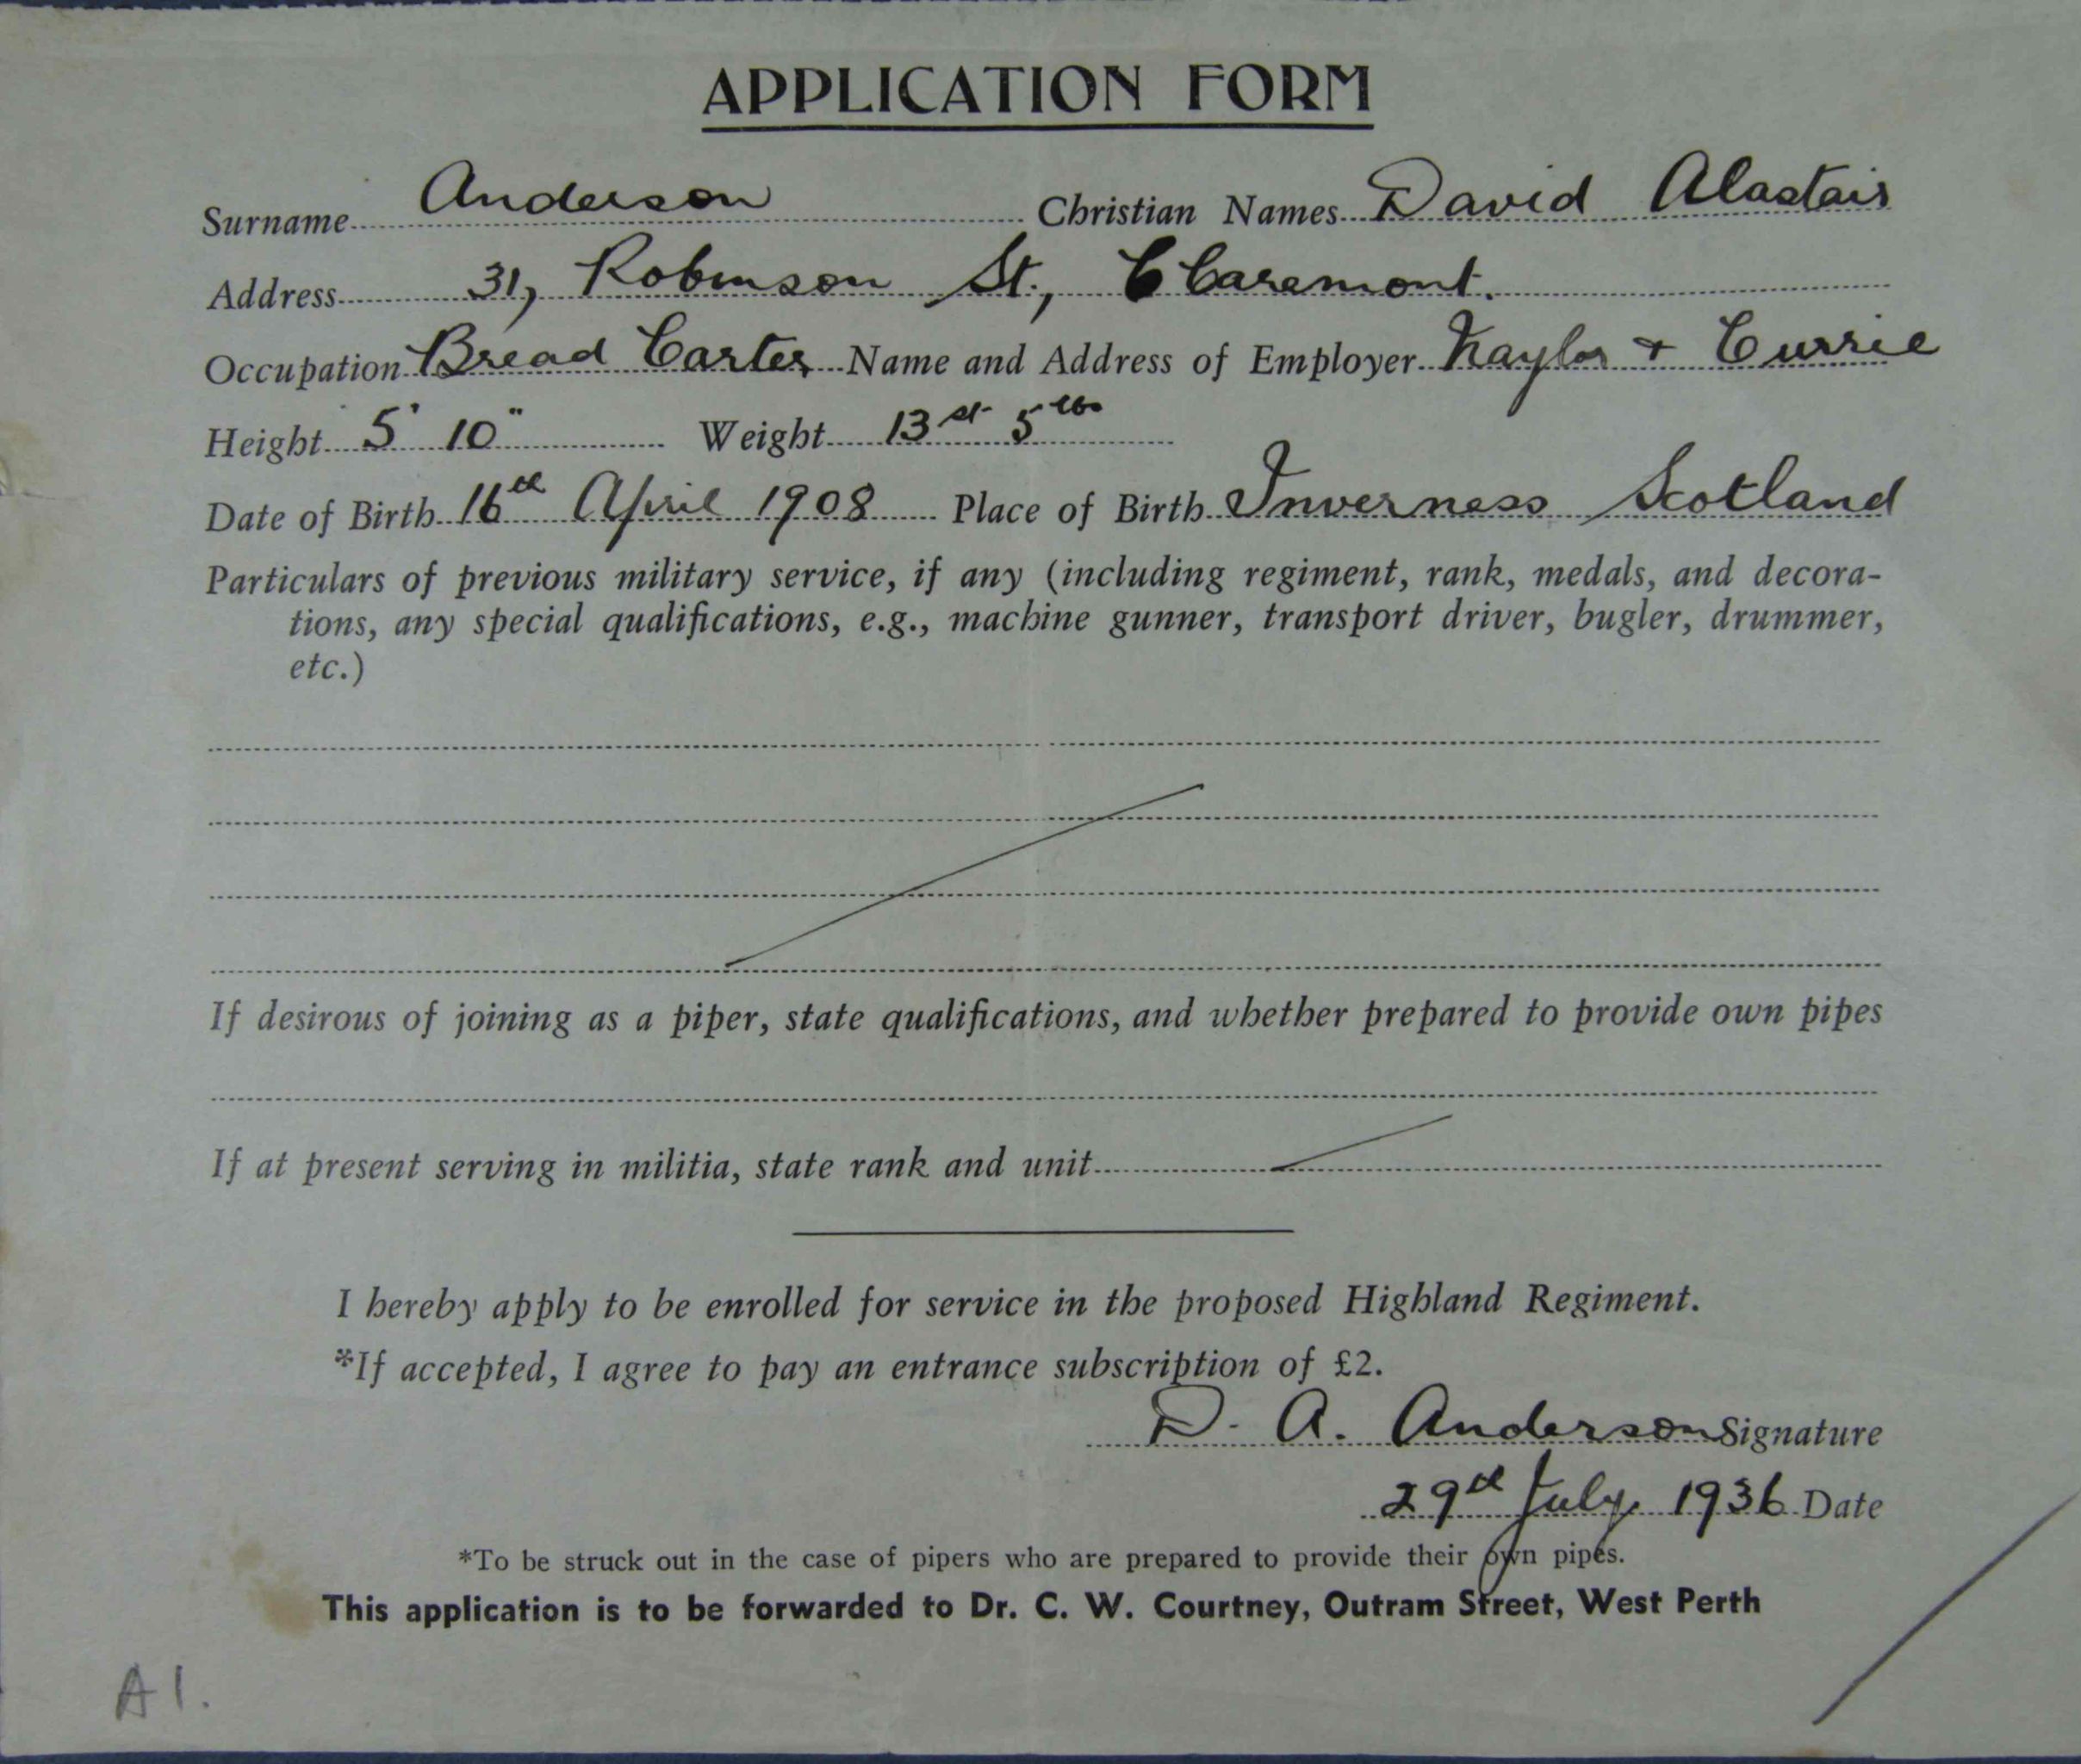 APPLICATION FORM
Surname Anderson Christian Names David Alastair
Address 31, Robinson St., Claremont.
Occupation Bread Carter Name and Address of Employer Naylor + Currie
Height 5' 10" Weight 13 st 5 lbs
Date of Birth 16th April 1908 Place of Birth Inverness Scotland
Particulars of previous military service, if any (including regiment, rank, medals, and decora-
tions, any special qualifications, e.g., machine gunner, transport driver, bugler, drummer,
etc.)
If desirous of joining as a piper, state qualifications, and whether prepared to provide own pipes
If at present serving in militia, state rank and unit
I hereby apply to be enrolled for service in the proposed Highland Regiment.
*If accepted, I agree to pay an entrance subscription of £2.
D. A. Anderson Signature
29th July, 1936 Date
*To be struck out in the case of pipers who are prepared to provide their own pipes.
This application is to be forwarded to Dr. C. W. Courtney, Outram Street, West Perth
A1.